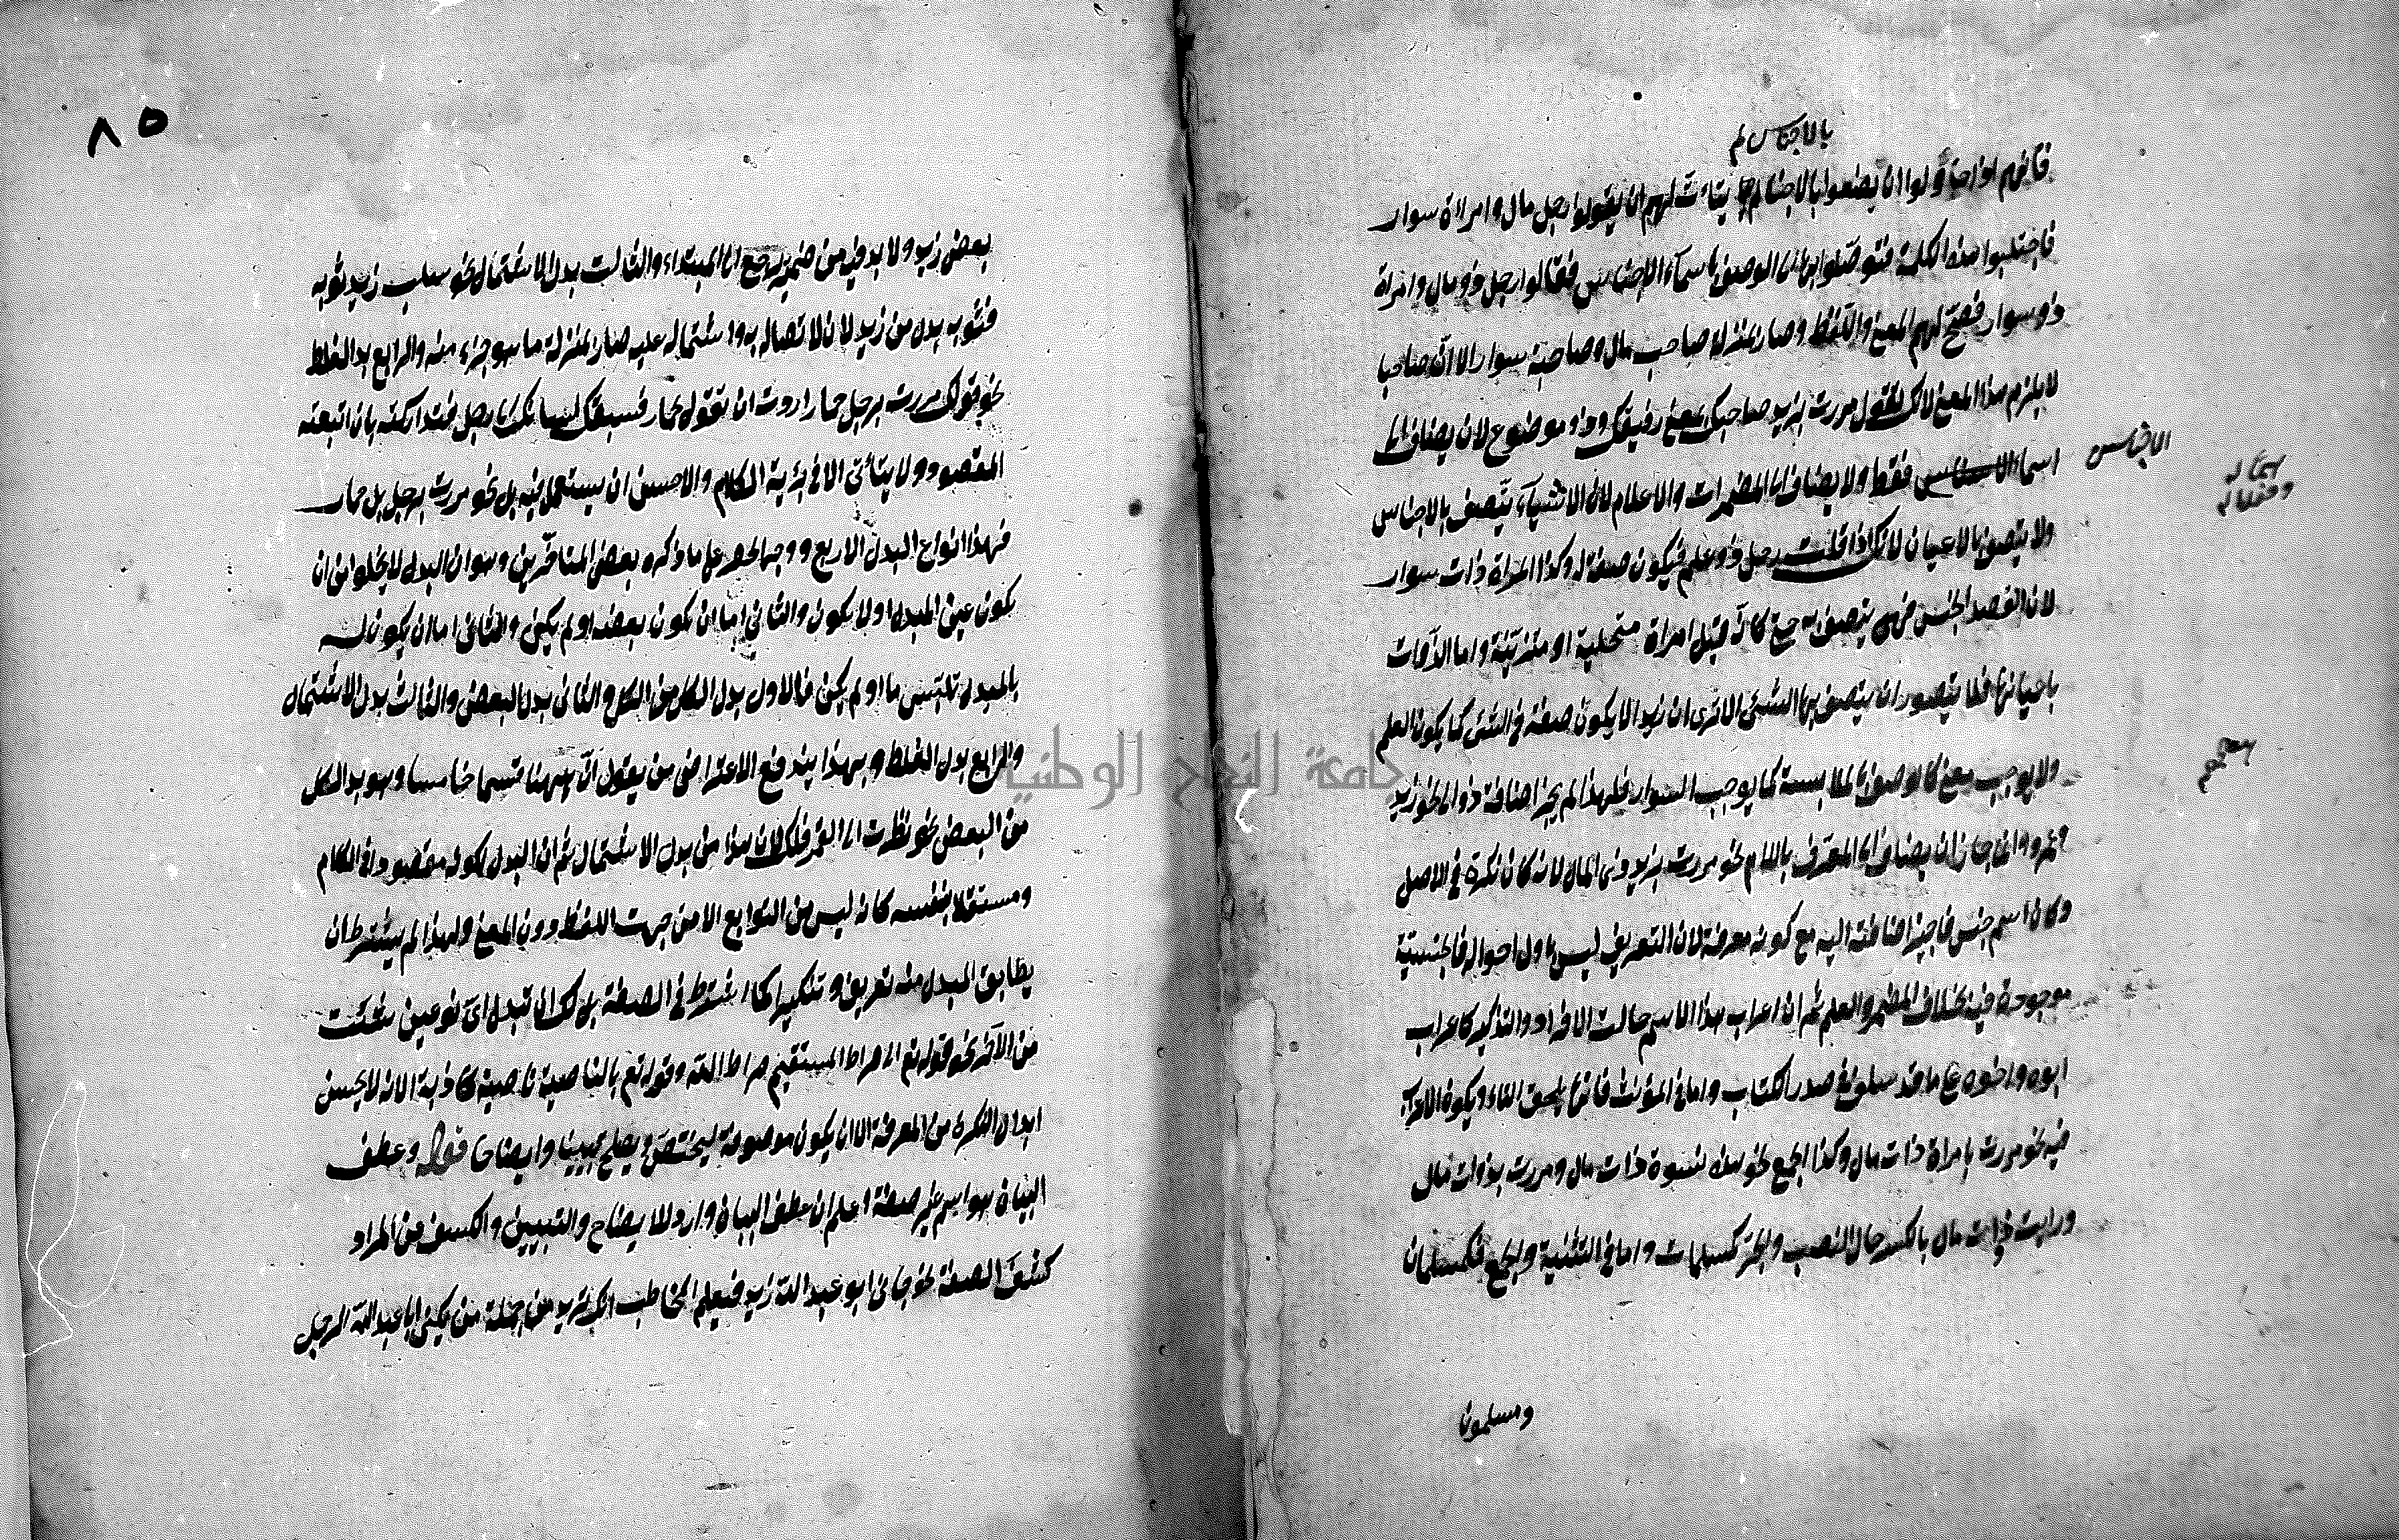 بالاجناس لم
فانهم اذا حاولوا ان يصفوا بالاجناس لم يتات لهم ان يقولوا رجل مال وامراة سوار
فاجتلبوا هذه الكلمة فتوصلوا بها الى الوصف باسماء الاجناس فقالوا رجل ذو مال وامراة
ذو سوار فصح لهم المعنى واللفظ وصار بمنزلة صاحب مال وصاحبة سوار الا ان صاحبا
لا يلزم هذا المعنى لانك تقول مررت بزيد صاحبك بمعنى رفيقك وذو موضوع لان يضاف الى
اسماء الاجناس فقط ولا يضاف الى المضمرات والاعلام لان الاشياء تتصف بالاجناس
الاجناس
ولا يتصف بالاعيان لانك اذا قلت رجل ذو علم فيكون صفة له وكذا المراة ذات سوار
لان القصد الجنس فهى يتصف به حتى كانه قيل امراة متحلية او متزينة واما الذوات
باعيانها فلا يتصور ان يتصف بها الشئ الا ترى ان زيدا لا يكون صفة فى الشئ كما يكون العلم
ولا يوجب معنى كالوصف بالملابسة كما يوجب السوار فلهذا لم يجز اضافة ذو الى نحو زيد
وعمرو وانما جاز ان يضاف الى المعرف باللام نحو مررت بزيد ذى المال لانه كان نكرة فى الاصل
وكان اسم جنس فاجيز اضافته اليه مع كونه معرفة لان التعريف ليس باول احواله فالجنسية
موجودة فيه بخلاف المضمر والعلم ثم ان اعراب هذا الاسم حالت الافراد والتذكير كاعراب
ابوه واخوه على ما قد سلف فى صدر الكتاب واما فى المؤنث فانها يلحق التاء ويكون الاعراب
فيه نحو مررت بامراة ذات مال وكذا الجمع نحو هذه نسوة ذات مال ومررت بذوات مال
ورايت ذوات مال بالكسر حال النصب والجر كمسلمات واما فى التثنية والجمع فكمسلمان
ومسلمون
٨٥
بعض زيد ولا بد فيه من ضمير يرجع الى المبتداء والثالث بدل الاشتمال نحو سلب زيد ثوبه
فثوبه بدل من زيد لانه لاتصاله به واشتماله عليه صار بمنزلة ما هو جزء منه والرابع بدل الغلط
نحو قولك مررت برجل حمار اردت ان تقول بحمار فسبقك لسانك الى رجل فتداركته بان اتبعته
المقصود ولا يتأتى الا فى بذية الكلام والاحسن ان يستعمل فيه بل نحو مررت برجل بل حمار
فهذا انواع البدل الاربع ووجه الحصر على ما ذكره بعض المتاخرين وهو ان البدل لا يخلو من ان
يكون عين المبدل او لا يكون والثانى اما ان يكون بعضه او لم يكن والثانى اما ان يكون له
بالمبدل تلبس ما او لم يكن فالاول بدل الكل من الكل والثانى بدل البعض والثالث بدل الاشتمال
والرابع بدل الغلط وبهذا يندفع الاعتراض من يقول ان ههنا قسما خامسا وهو بدل الكل
من البعض نحو نظرت الى القمر فلكه لان هذا من بدل الاشتمال ثم ان البدل لكونه مقصودا فى الكلام
ومستقلا بنفسه كانه ليس من التوابع الا من جهت اللفظ دون المعنى ولهذا لم يشترط ان
يطابق المبدل منه تعريفا وتنكيرا كما اشترط فى الصفة بل لك ان تبدل اى نوعين شئت
من الآخر نحو قوله تع الى صراط المستقيم صراط الله وقوله تع بالناصية ناصية كاذبة الا انه لا يحسن
ابدال النكرة من المعرفة الا ان يكون موصوفة ليختص ويصلح تبيينا وايضاحا قوله وعطف
البيان هو اسم غير صفة اعلم ان عطف البيان وارد للايضاح والتبيين والكشف عن المراد
كشف الصفة نحو جانى ابو عبد الله زيد فيعلم المخاطب انك تريد من جملة من يكنى ابا عبد الله الرجل
جامعة النجاح الوطنية